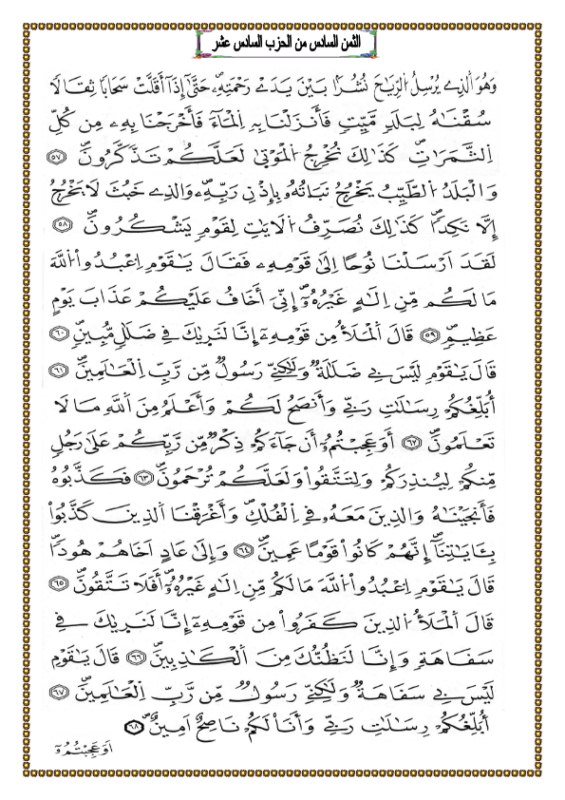 الثمن السادس من الحزب السادس عشر
وَهُوَ اَ۬لذِے يُرْسِلُ اُ۬لرِّيَٰحَ نُشُراَۢ بَيْنَ يَدَےْ رَحْمَتِهِۦ حَتَّيٰٓ إِذَآ أَقَلَّتْ سَحَاباٗ ثِقَالاٗ
سُقْنَٰهُ لِبَلَدٖ مَّيِّتٖ فَأَنزَلْنَا بِهِ اِ۬لْمَآءَ فَأَخْرَجْنَا بِهِۦ مِن كُلِّ
اِ۬لثَّمَرَٰتِۖ كَذَٰلِكَ نُخْرِجُ اُ۬لْمَوْتۭيٰ لَعَلَّكُمْ تَذَّكَّرُونَۖ ٥٧
وَالْبَلَدُ اُ۬لطَّيِّبُ يَخْرُجُ نَبَاتُهُۥ بِإِذْنِ رَبِّهِۦ وَالذِے خَبُثَ لَا يَخْرُجُ
إِلَّا نَكِداٗۖ كَذَٰلِكَ نُصَرِّفُ اُ۬لَايَٰتِ لِقَوْمٖ يَشْكُرُونَۖ ٥٨
لَقَدَ اَرْسَلْنَا نُوحاً اِلَىٰ قَوْمِهِۦ فَقَالَ يَٰقَوْمِ اِ۟عْبُدُواْ اُ۬للَّهَ
مَا لَكُم مِّنِ اِلَٰهٍ غَيْرُهُۥٓۖ إِنِّيَ أَخَافُ عَلَيْكُمْ عَذَابَ يَوْمٍ
عَظِيمٖۖ ٥٩ قَالَ اَ۬لْمَلَأُ مِن قَوْمِهِۦٓ إِنَّا لَنَر۪يٰكَ فِے ضَلَٰلٖ مُّبِينٖۖ ٦٠
قَالَ يَٰقَوْمِ لَيْسَ بِے ضَلَٰلَةٞ وَلَٰكِنِّے رَسُولٞ مِّن رَّبِّ اِ۬لْعَٰلَمِينَۖ ٦١
أُبَلِّغُكُمْ رِسَٰلَٰتِ رَبِّے وَأَنصَحُ لَكُمْ وَأَعْلَمُ مِنَ اَ۬للَّهِ مَا لَا
تَعْلَمُونَۖ ٦٢ أَوَعَجِبْتُمُۥٓ أَن جَآءَكُمْ ذِكْرٞ مِّن رَّبِّكُمْ عَلَىٰ رَجُلٖ
مِّنكُمْ لِيُنذِرَكُمْ وَلِتَتَّقُواْ وَلَعَلَّكُمْ تُرْحَمُونَۖ ٦٣ فَكَذَّبُوهُ
فَأَنجَيْنَٰهُ وَالذِينَ مَعَهُۥ فِے اِ۬لْفُلْكِۖ وَأَغْرَقْنَا اَ۬لذِينَ كَذَّبُواْ
بِـَٔايَٰتِنَآۖ إِنَّهُمْ كَانُواْ قَوْماً عَمِينَۖ ٦٤ وَإِلَىٰ عَادٍ اَخَاهُمْ هُوداٗۖ
قَالَ يَٰقَوْمِ اِ۟عْبُدُواْ اُ۬للَّهَ مَا لَكُم مِّنِ اِلَٰهٍ غَيْرُهُۥٓۖ أَفَلَا تَتَّقُونَۖ ٦٥
قَالَ اَ۬لْمَلَأُ اُ۬لذِينَ كَفَرُواْ مِن قَوْمِهِۦٓ إِنَّا لَنَر۪يٰكَ فِے
سَفَاهَةٖ وَإِنَّا لَنَظُنُّكَ مِنَ اَ۬لْكَٰذِبِينَۖ ٦٦ قَالَ يَٰقَوْمِ
لَيْسَ بِے سَفَاهَةٞ وَلَٰكِنِّے رَسُولٞ مِّن رَّبِّ اِ۬لْعَٰلَمِينَۖ ٦٧
أُبَلِّغُكُمْ رِسَٰلَٰتِ رَبِّے وَأَنَا لَكُمْ نَاصِحٌ اَمِينٌۖ ٦٨
اَوَعَجِبْتُمُۥٓ